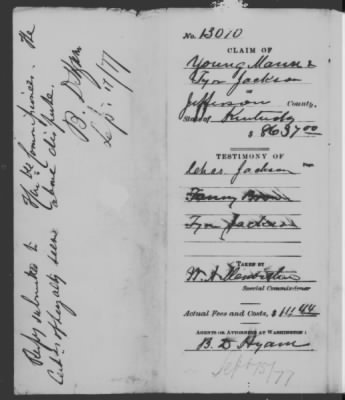 No. 13010
CLAIM OF
Young Mann &
Tyre Jackson
Jefferson County,
State of Kentucky
$ 8637.00
TESTIMONY OF
Page.
Chas. Jackson
Fanny
Tyre Jackson
TAKEN BY
W. A.
Special Commissioner
Actual Fees and Costs, $ 11.44
AGENTS OR ATTORNEYS AT WASHINGTON:
B. D. Hyam
Sept 15/77
submitted to the Commissioners. The
above dispute.
B. D. Hyam
Sept. 11/77